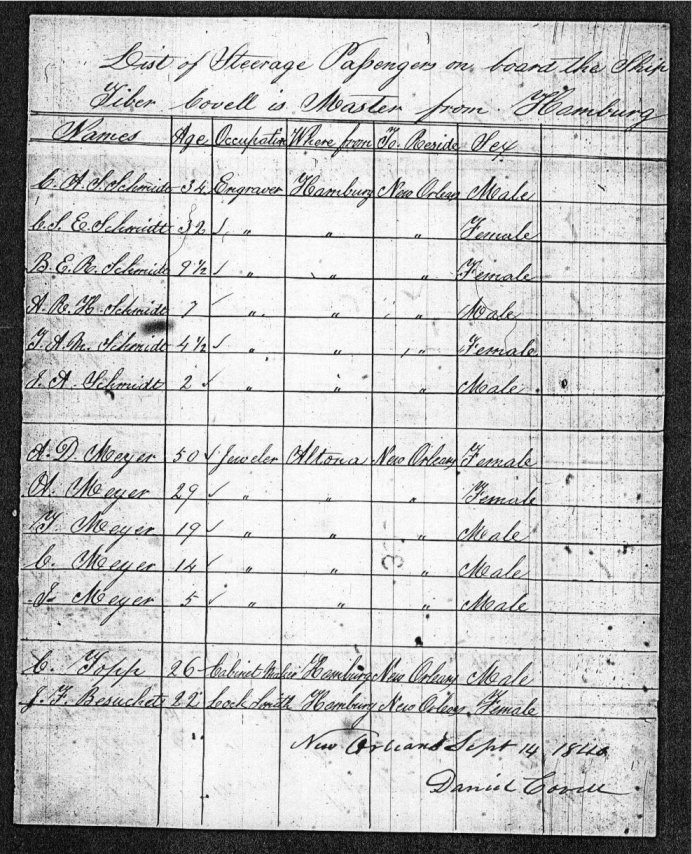 List of Steerage Passengers on board the Ship
Tiber Covell is Master from Hamburg
Names Age Occupatin Where from To Reside Sex
C. A. S. Schmidt 34 Engraver Hamburg New Orlean Male
C. S. E. Schmidt 32 " " " Female
B. E. R. Schmidt 9 1/2 " " " Female
A. R. H. Schmidt 7 " " " Male
T. A. M. Schmidt 4 1/2 " " " Female
J. A. Schmidt 2 " " " Male
A. D. Meyer 50 Jeweler Altona New Orleans Female
A. Meyer 29 " " " Female
T. Meyer 19 " " " Male
C. Meyer 14 " " " Male
J. Meyer 5 " " " Male
C. Topp 26 Cabinet Maker Hamburg New Orleans Male
J. F. Besuchet 22 Lock Smith Hamburg New Orleans Female
New Orleans Sept 14 1840
Daniel Covell